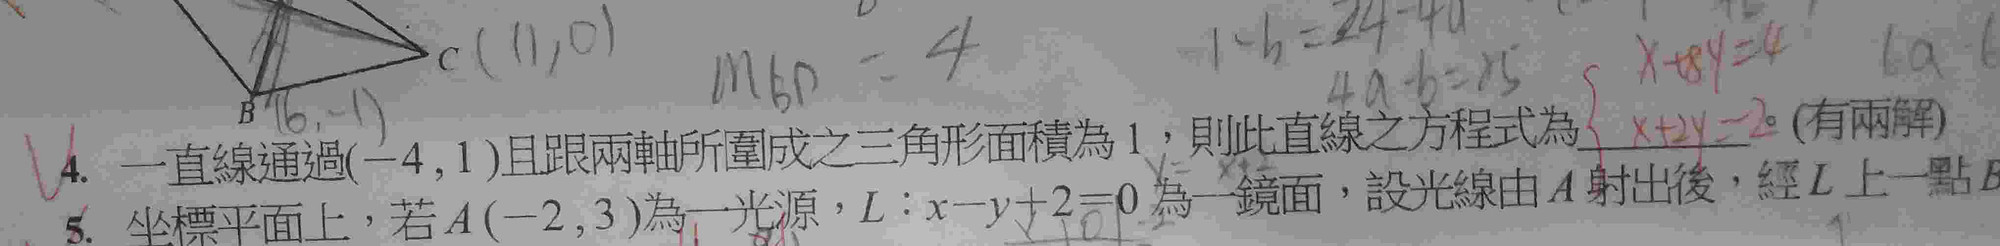 C (11,0)
m BD = 4
-1-b=24-4a
4a-b=25
x+8y=4
6a
B (6,-1)
x+2y=-2
4. 一直線通過(-4,1)且跟兩軸所圍成之三角形面積為1,則此直線之方程式為 。(有兩解)
5. 坐標平面上,若A(-2,3)為一光源,L:x-y+2=0為一鏡面,設光線由A射出後,經L上一點B